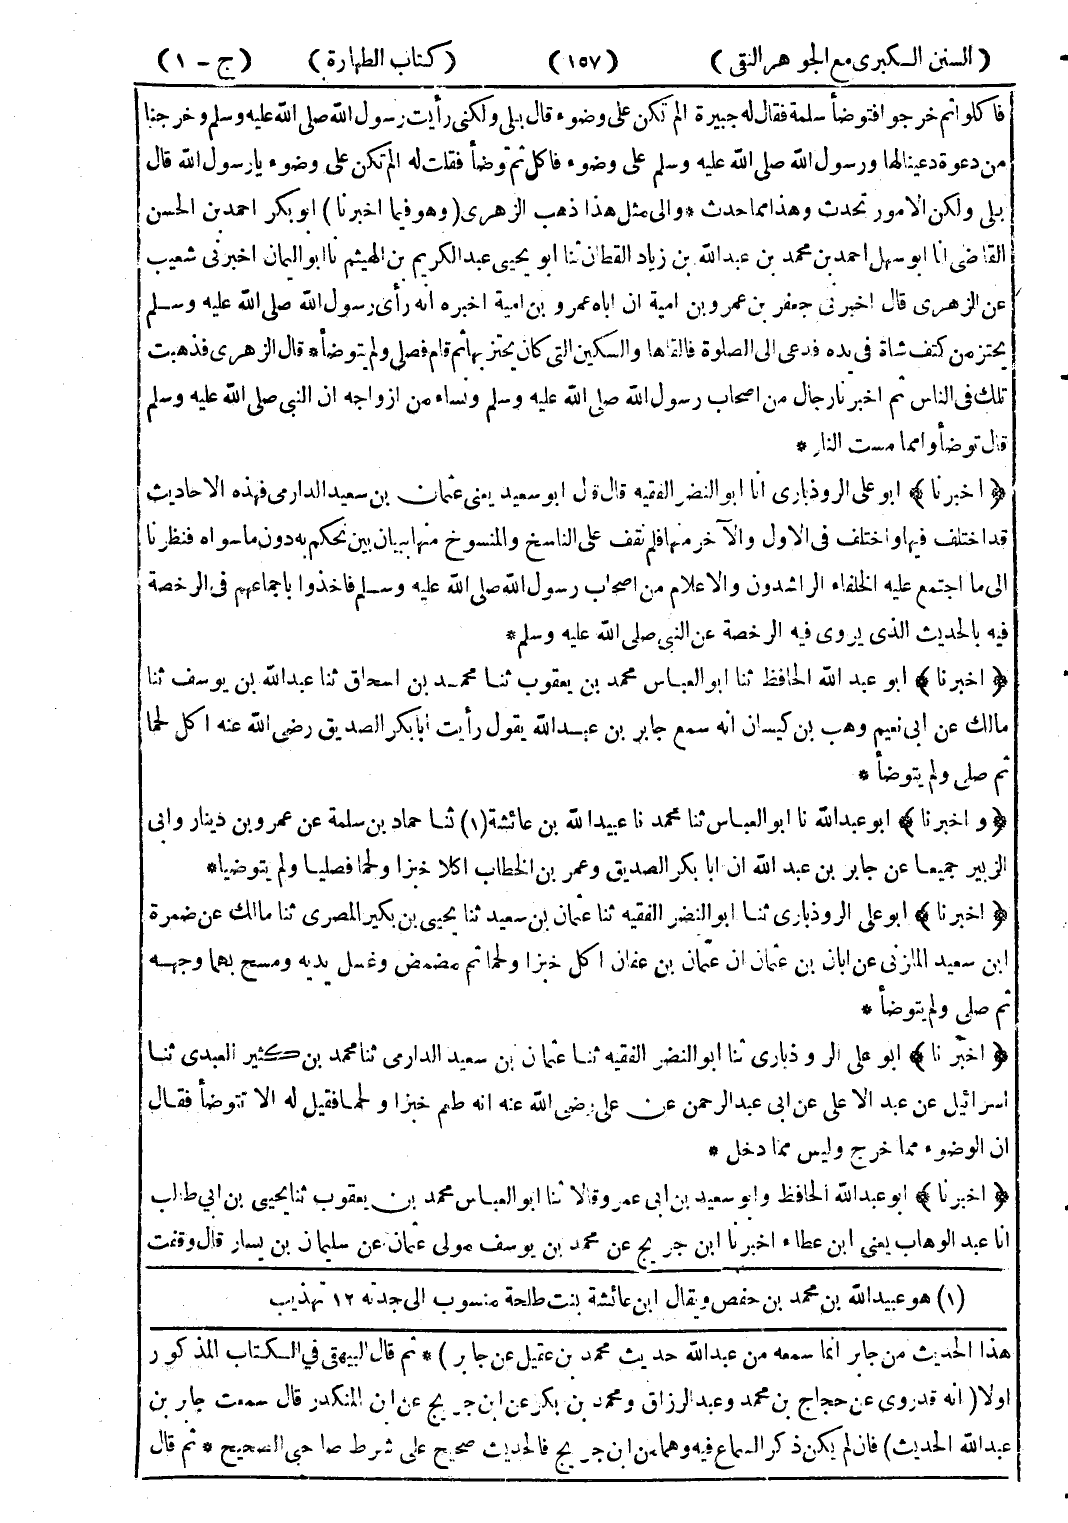 ( السنن الكبرى مع الجوهر النقى ) ( ١٥٧ ) ( كتاب الطهارة ) ( ج - ١ )
فاكلوا ثم خرجوا فتوضأ سلمة فقال له جبيرة الم تكن على وضوء قال بلى ولكنى رأيت رسول الله صلى الله عليه وسلم وخرجنا
من دعوة دعينا لها ورسول الله صلى الله عليه وسلم على وضوء فاكل ثم توضأ فقلت له الم تكن على وضوء يا رسول الله قال
بلى ولكن الامور تحدث وهذا مما حدث * والى مثل هذا ذهب الزهرى ( وهو فيما اخبرنا ) ابو بكر احمد بن الحسن
القاضى انا ابو سهل احمد بن محمد بن عبدالله بن زياد القطان ثنا ابو يحيى عبد الكريم بن الهيثم نا ابو اليمان اخبرنى شعيب
عن الزهرى قال اخبرنى جعفر بن عمرو بن امية ان اباه عمرو بن امية اخبره انه رأى رسول الله صلى الله عليه وسلم
يحتز من كتف شاة فى يده فدعى الى الصلوة فالقاها والسكين التى كان يحتز بها ثم قام فصلى ولم يتوضأ * قال الزهرى فذهبت
تلك فى الناس ثم اخبرنا رجال من اصحاب رسول الله صلى الله عليه وسلم ونساء من ازواجه ان النبى صلى الله عليه وسلم
قال توضأوا مما مست النار *
﴿ اخبرنا ﴾ ابو على الروذبارى انا ابو النضر الفقيه قال قال ابو سعيد يعنى عثمان بن سعيد الدارمى فهذه الاحاديث
قد اختلف فيها واختلف فى الاول والآخر منها فلم نقف على الناسخ والمنسوخ منها ببيان بين نحكم به دون ما سواه فنظرنا
الى ما اجتمع عليه الخلفاء الراشدون والاعلام من اصحاب رسول الله صلى الله عليه وسلم فاخذوا باجماعهم فى الرخصة
فيه بالحديث الذى يروى فيه الرخصة عن النبى صلى الله عليه وسلم *
﴿ اخبرنا ﴾ ابو عبد الله الحافظ ثنا ابو العباس محمد بن يعقوب ثنا محمد بن اسحاق ثنا عبدالله بن يوسف ثنا
مالك عن ابى نعيم وهب بن كيسان انه سمع جابر بن عبدالله يقول رأيت ابا بكر الصديق رضى الله عنه اكل لحما
ثم صلى ولم يتوضأ *
﴿ و اخبرنا ﴾ ابو عبدالله نا ابو العباس ثنا محمد نا عبيد الله بن عائشة (١) ثنا حماد بن سلمة عن عمرو بن دينار وابى
الزبير جميعا عن جابر بن عبد الله ان ابا بكر الصديق وعمر بن الخطاب اكلا خبزا ولحما فصليا ولم يتوضيا *
﴿ اخبرنا ﴾ ابو على الروذبارى ثنا ابو النضر الفقيه ثنا عثمان بن سعيد ثنا يحيى بن بكير المصرى ثنا مالك عن ضمرة
ابن سعيد المازنى عن ابان بن عثمان ان عثمان بن عفان اكل خبزا ولحما ثم مضمض وغسل يديه ومسح بهما وجهه
ثم صلى ولم يتوضأ *
﴿ اخبرنا ﴾ ابو على الروذبارى ثنا ابو النضر الفقيه ثنا عثمان بن سعيد الدارمى ثنا محمد بن كثير العبدى ثنا
اسرائيل عن عبد الاعلى عن ابى عبد الرحمن عن على رضى الله عنه انه طعم خبزا ولحما فقيل له الا تتوضأ فقال
ان الوضوء مما خرج وليس مما دخل *
﴿ اخبرنا ﴾ ابو عبدالله الحافظ وابو سعيد بن ابى عمرو قالا ثنا ابو العباس محمد بن يعقوب ثنا يحيى بن ابى طالب
انا عبد الوهاب يعنى ابن عطاء اخبرنا ابن جريج عن محمد بن يوسف مولى عثمان عن سليمان بن يسار قال وقفت
(١) هو عبيدالله بن محمد بن حفص ويقال ابن عائشة بنت طلحة منسوب الى جدته ١٢ تهذيب
هذا الحديث من جابر انما سمعه من عبدالله حديث محمد بن عقيل عن جابر ) * ثم قال البيهقى فى الكتاب المذكور
اولا ( انه قد روى عن حجاج بن محمد وعبد الرزاق ومحمد بن بكر عن ابن جريج عن ابن المنكدر قال سمعت جابر بن
عبدالله الحديث ) فان لم يكن ذكر السماع فيه وهما من ابن جريج فالحديث صحيح على شرط صاحبى الصحيح * ثم قال